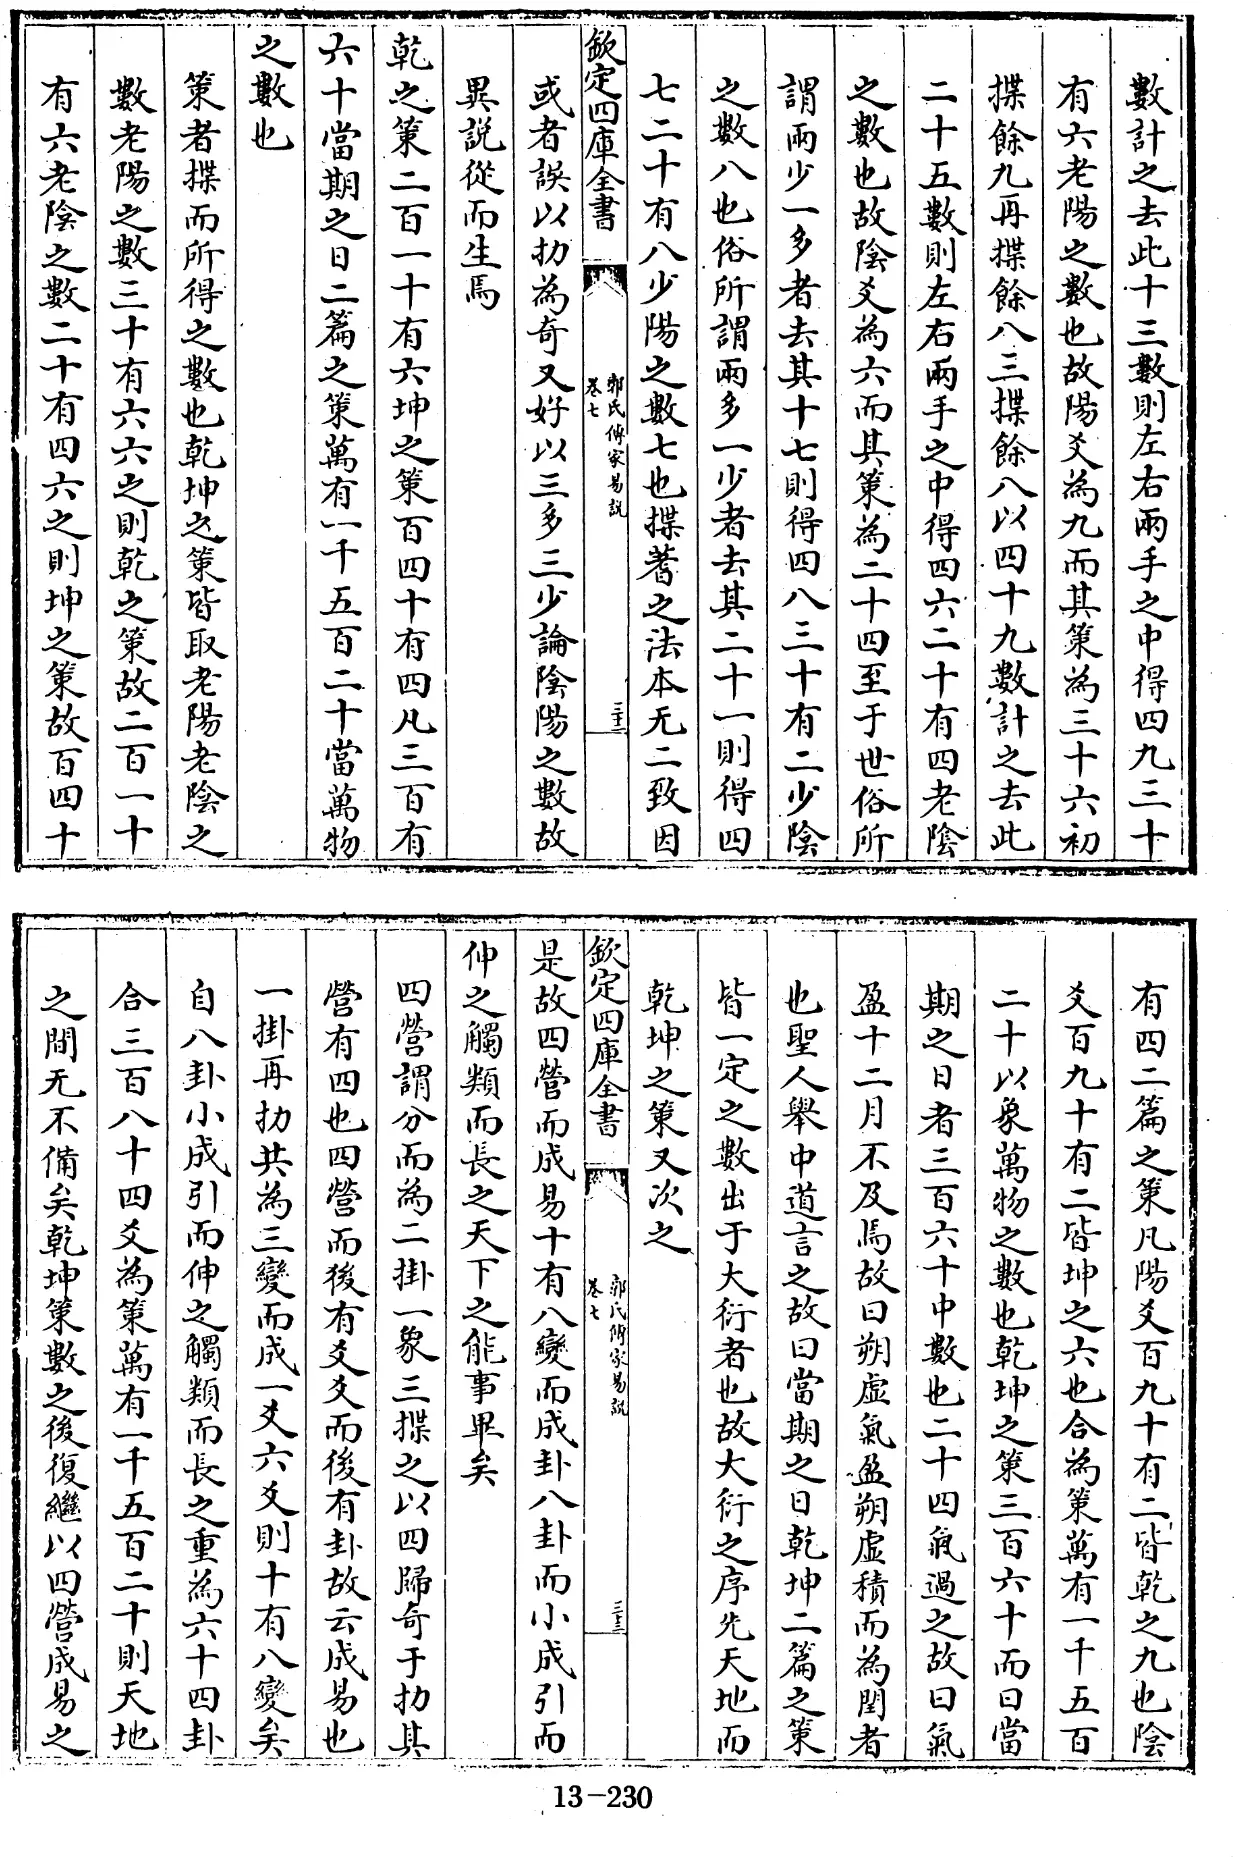 數計之去此十三數則左右兩手之中得四九三十
有六老陽之數也故陽爻為九而其策為三十六初
揲餘九再揲餘八三揲餘八以四十九數計之去此
二十五數則左右兩手之中得四六二十有四老陰
之數也故陰爻為六而其策為二十四至于世俗所
謂兩少一多者去其十七則得四八三十有二少陰
之數八也俗所謂兩多一少者去其二十一則得四
七二十有八少陽之數七也揲蓍之法本无二致因
欽定四庫全書
郭氏傳家易說
卷七
三十二
或者誤以扐為奇又好以三多三少論陰陽之數故
異說從而生焉
乾之策二百一十有六坤之策百四十有四凡三百有
六十當期之日二篇之策萬有一千五百二十當萬物
之數也
策者揲而所得之數也乾坤之策皆取老陽老陰之
數老陽之數三十有六六之則乾之策故二百一十
有六老陰之數二十有四六之則坤之策故百四十
有四二篇之策凡陽爻百九十有二皆乾之九也陰
爻百九十有二皆坤之六也合為策萬有一千五百
二十以象萬物之數也乾坤之策三百六十而曰當
期之日者三百六十中數也二十四氣過之故曰氣
盈十二月不及焉故曰朔虛氣盈朔虛積而為閏者
也聖人舉中道言之故曰當期之日乾坤二篇之策
皆一定之數出于大衍者也故大衍之序先天地而
乾坤之策又次之
欽定四庫全書
郭氏傳家易說
卷七
三十三
是故四營而成易十有八變而成卦八卦而小成引而
伸之觸類而長之天下之能事畢矣
四營謂分而為二掛一象三揲之以四歸奇于扐其
營有四也四營而後有爻爻而後有卦故云成易也
一掛再扐共為三變而成一爻六爻則十有八變矣
自八卦小成引而伸之觸類而長之重為六十四卦
合三百八十四爻為策萬有一千五百二十則天地
之間无不備矣乾坤策數之後復繼以四營成易之
13-230